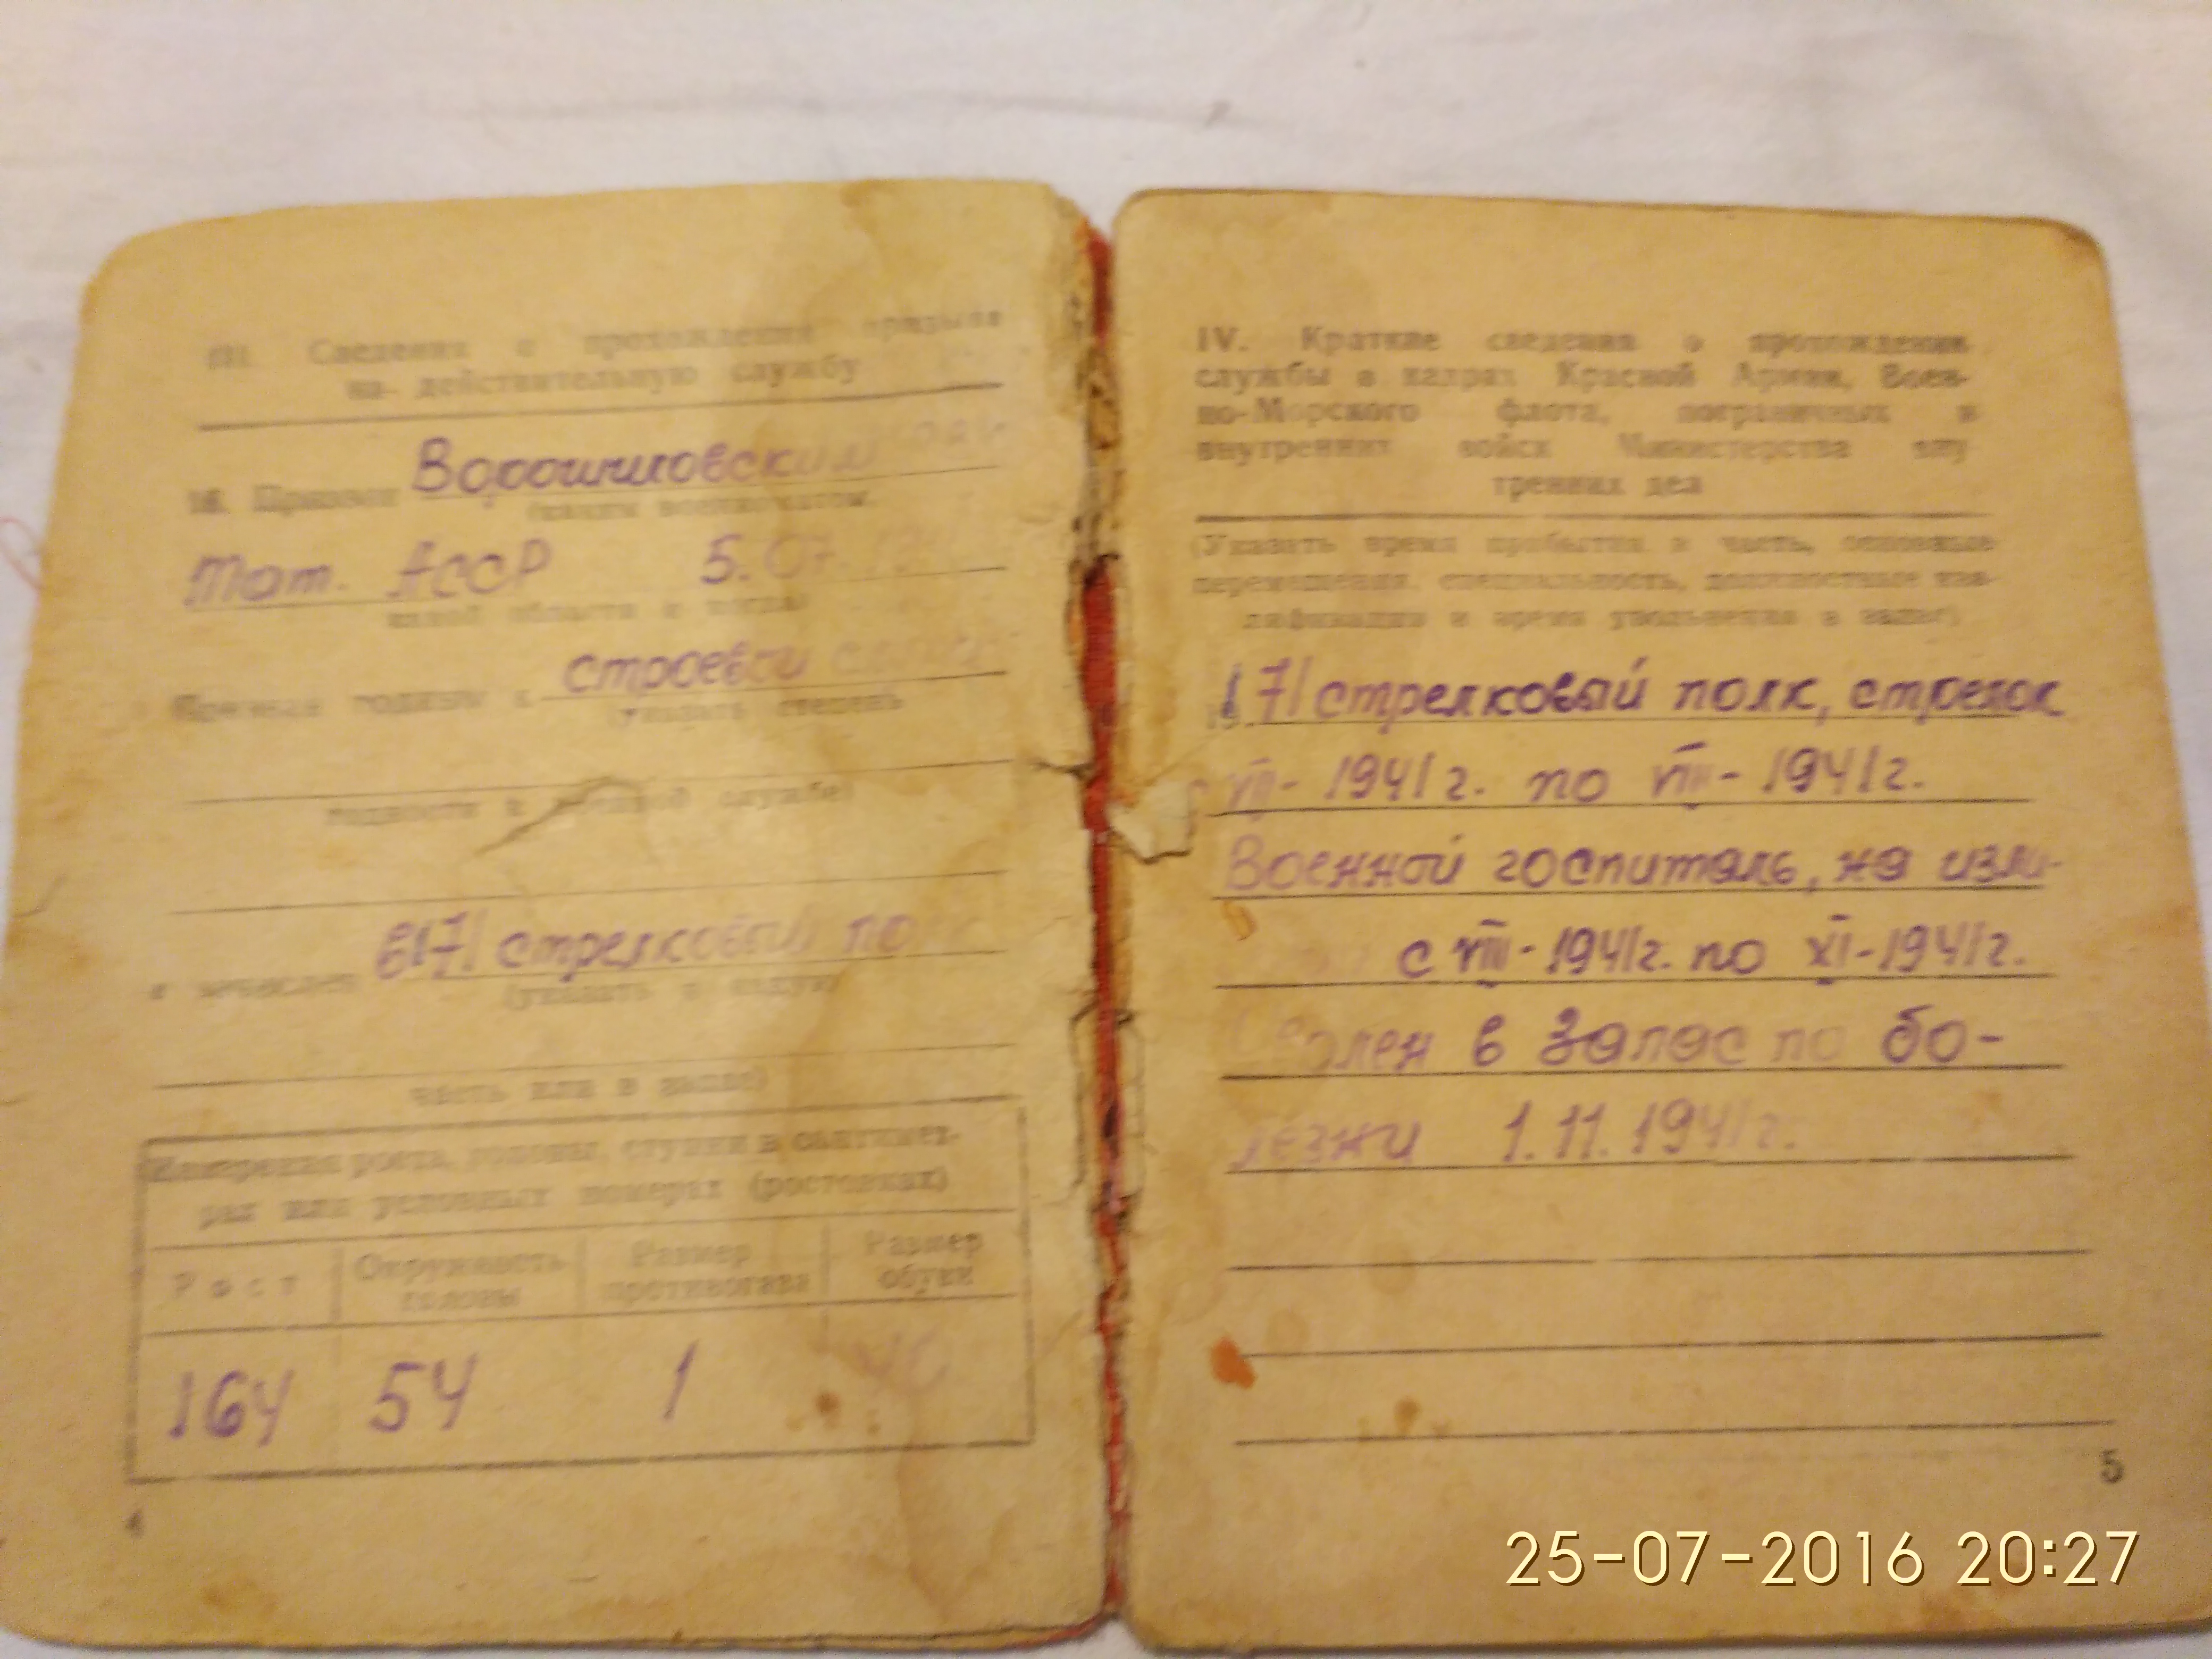 III. Сведения о прохождении призыва
на действительную службу
16. Призван Ворошиловским
(каким военкоматом,
Тат. АССР 5.07.194
какой области и когда)
Признан годным к строевой
(указать степень
годности к военной службе)
и зачислен 617/ стрелковый по
(указать в какую
часть или в запас)
Измерения роста, головы, ступни в сантимет-
рах или условных номерах (ростовках)
Рост Окружность головы Размер противогаза Размер обуви
164 54 1
4
IV. Краткие сведения о прохождении
службы в кадрах Красной Армии, Воен-
но-Морского флота, пограничных и
внутренних войск Министерства вну
тренних дел
(Указать время прибытия в часть, основные
перемещения, специальность, должностные ква-
лификации и время увольнения в запас)
17/ стрелковый полк, стрелок
с VII- 1941г. по VIII- 1941г.
Военной госпиталь, на изле-
с VIII-1941г. по XI-1941г.
Уволен в запас по бо-
лезни 1.11.1941г.
5
25-07-2016 20:27